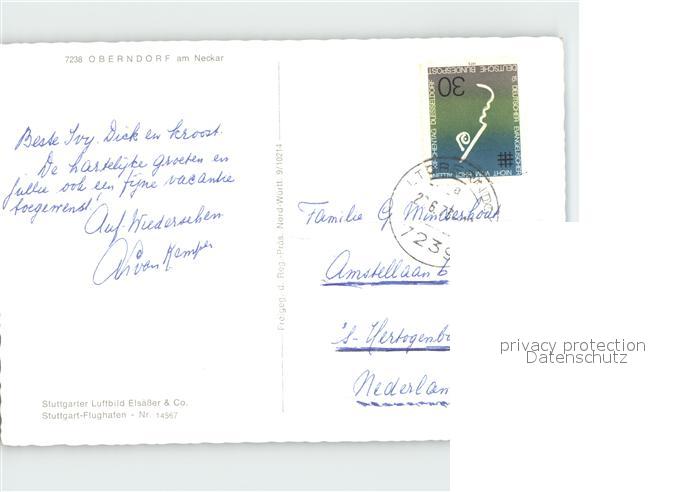 7238 OBERNDORF am Neckar
Beste Ivy, Dick en kroost.
De hartelijke groeten en
jullie ook een fijne vacantie
toegewenst!
Auf Wiedersehen
van Kemper
Stuttgarter Luftbild Elsäßer & Co.
Stuttgart-Flughafen - Nr. 14567
Freigeg. d. Reg.-Präs. Nord-Württ. 9/10214
DEUTSCHE BUNDESPOST
15. DEUTSCHER EVANGELISCHER
KIRCHENTAG DUESSELDORF
NICHT VOM BROT ALLEIN
30
723
Familie G Minderhout
Amstellaan 6
's-Hertogenbo
Nederlan
privacy protection
Datenschutz